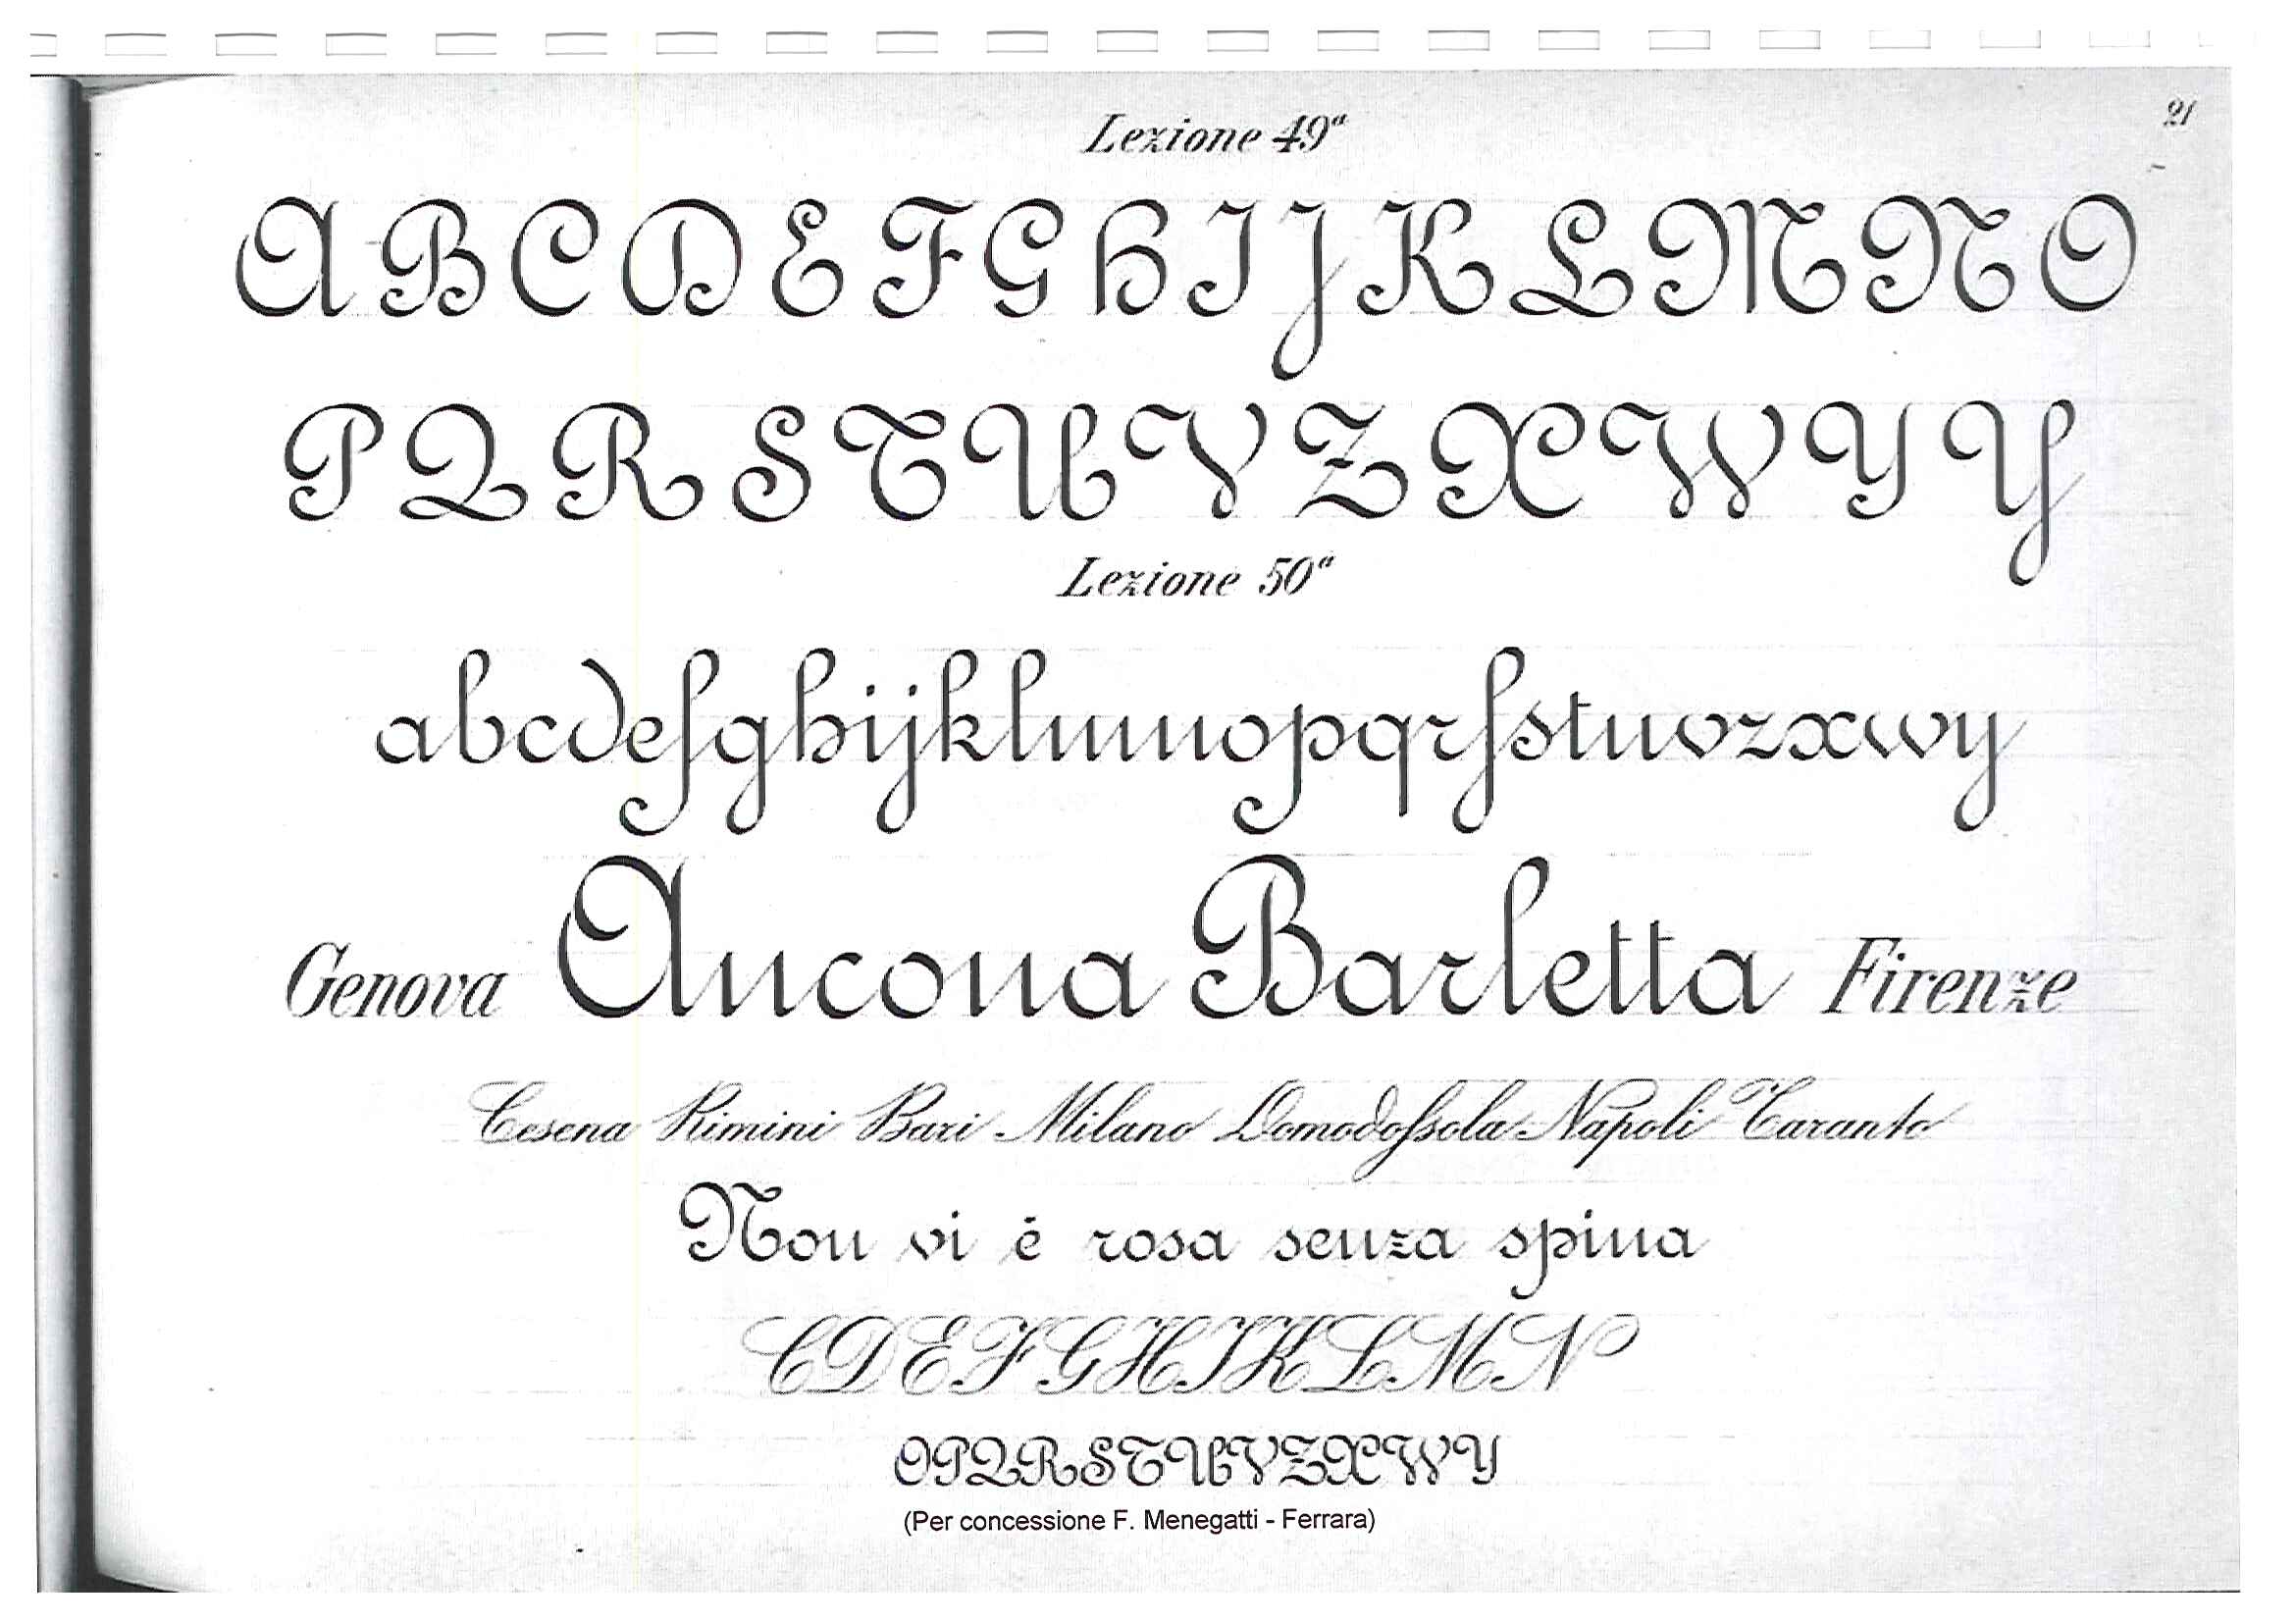 21
Lezione 49ª
A B C D E F G H I J K L M N O
P Q R S T U V Z X W Y Y
Lezione 50ª
abcdefghijklmnopqrſstuvzxwy
Genova Ancona Barletta Firenze
Cesena Rimini Bari Milano Domodoſsola Napoli Taranto
Non vi è rosa senza spina
C D E F G H I K L M N
O P Q R S T U V Z X W Y
(Per concessione F. Menegatti - Ferrara)